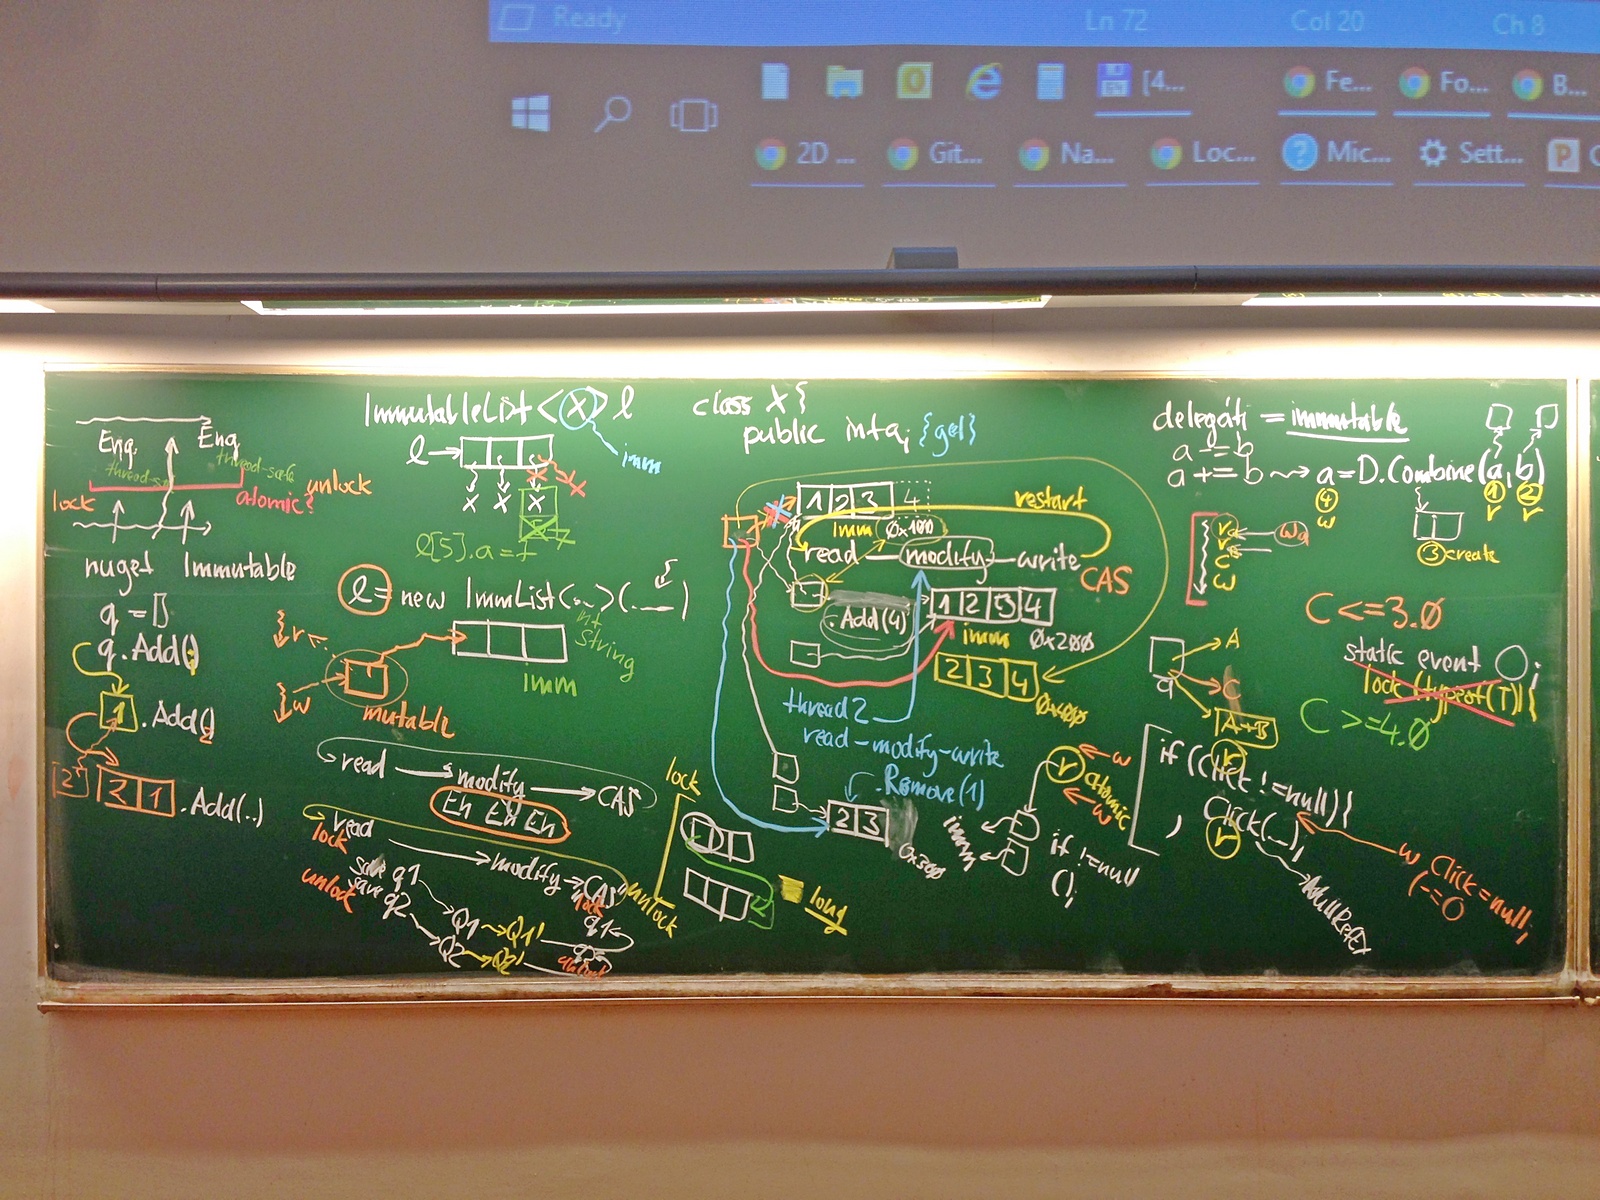 Ready
Ln 72
Col 20
Ch 8
[4...
Fe...
Fo...
B...
2D ...
Git...
Na...
Loc...
Mic...
Sett...
Enq.
Enq
thread-safe
lock
atomic
unlock
nuget Immutable
q = []
q.Add()
1 .Add()
2
2 1 .Add(..)
ImmutableList<X> l
l
imm
X X X
l[5].a = 7
l = new ImmList<...>(...)
int
string
r
w
imm
mutable
read modify CAS
En En En
read modify "CAS"
lock
save q1
unlock
save q2
Q1 Q1'
Q2 Q2'
lock
q1
unlock
class X {
public int a; {get}
1 2 3 4
restart
imm 0x100
read — modify — write
CAS
.Add(4)
1 2 3 4
imm 0x200
2 3 4
0x400
thread 2
read-modify-write
.Remove(1)
2 3
0x300
lock
unlock
long
w
r atomic
w
imm
if !=null
();
delegáti = immutable
a = b
a += b a = D.Combine(a, b)
4 1 2
w r r
3 create
w
C <= 3.0
static event ;
lock (typeof(T)) {
C >= 4.0
A
C
a
A+B
if (Click != null) {
r
Click(...);
r
w Click = null;
NullRefEx